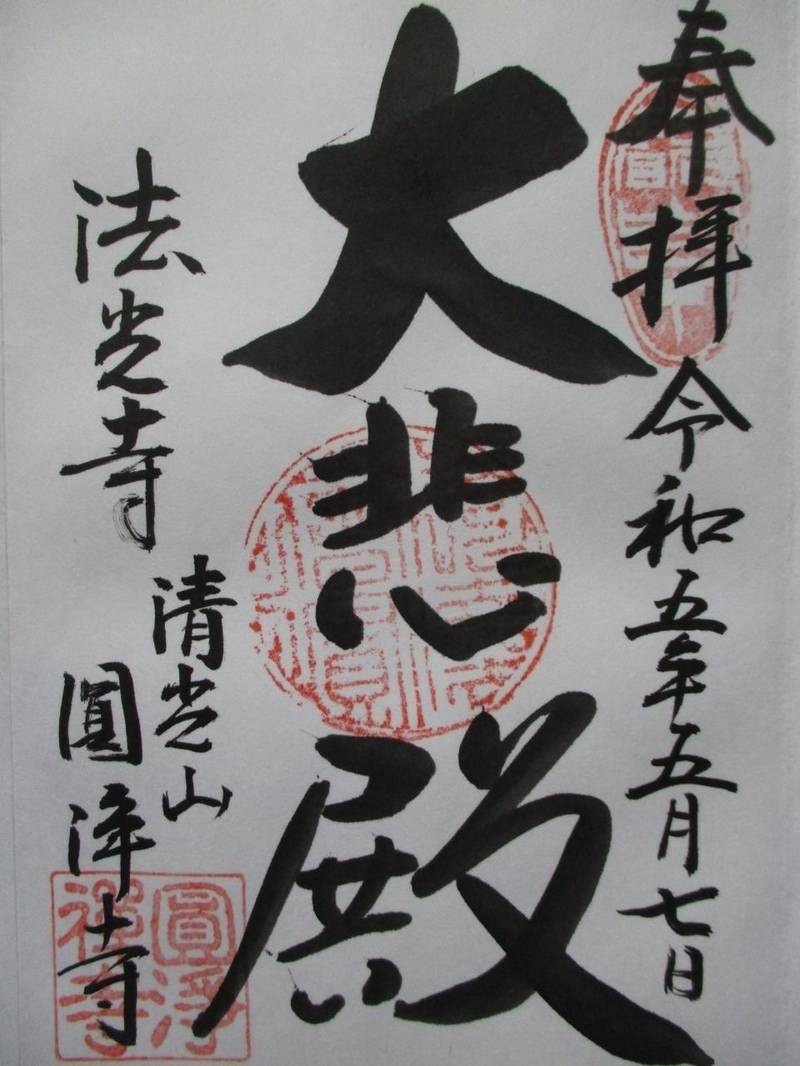 奉拝 令和五年五月七日
大悲殿
法光寺
清光山
圓浄寺
圓浄
禅寺